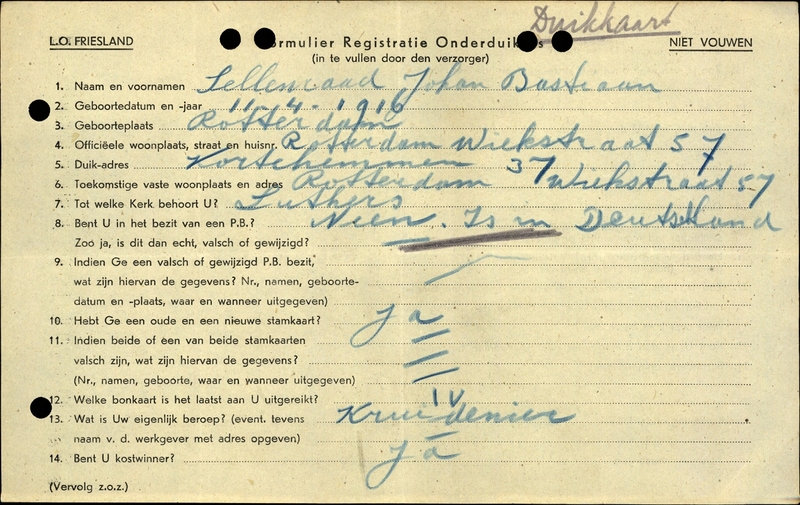 Duikkaart
L.O. FRIESLAND
Formulier Registratie Onderduikers
NIET VOUWEN
(in te vullen door den verzorger)
1. Naam en voornamen Sellenraad Johan Bastiaan
2. Geboortedatum en -jaar 11-4-1916
3. Geboorteplaats Rotterdam
4. Officiëele woonplaats, straat en huisnr. Rotterdam Wiekstraat 57
5. Duik-adres Kortehemmen 37
6. Toekomstige vaste woonplaats en adres Rotterdam Wiekstraat 57
7. Tot welke Kerk behoort U? Luthers
8. Bent U in het bezit van een P.B.? Neen. Is in Deutschland
Zoo ja, is dit dan echt, valsch of gewijzigd?
9. Indien Ge een valsch of gewijzigd P.B. bezit,
wat zijn hiervan de gegevens? Nr., namen, geboorte-
datum en -plaats, waar en wanneer uitgegeven)
10. Hebt Ge een oude en een nieuwe stamkaart? ja
11. Indien beide of één van beide stamkaarten
valsch zijn, wat zijn hiervan de gegevens?
(Nr., namen, geboorte, waar en wanneer uitgegeven)
12. Welke bonkaart is het laatst aan U uitgereikt? IV
13. Wat is Uw eigenlijk beroep? (event. tevens Kruidenier
naam v. d. werkgever met adres opgeven) —
14. Bent U kostwinner? ja
(Vervolg z.o.z.)